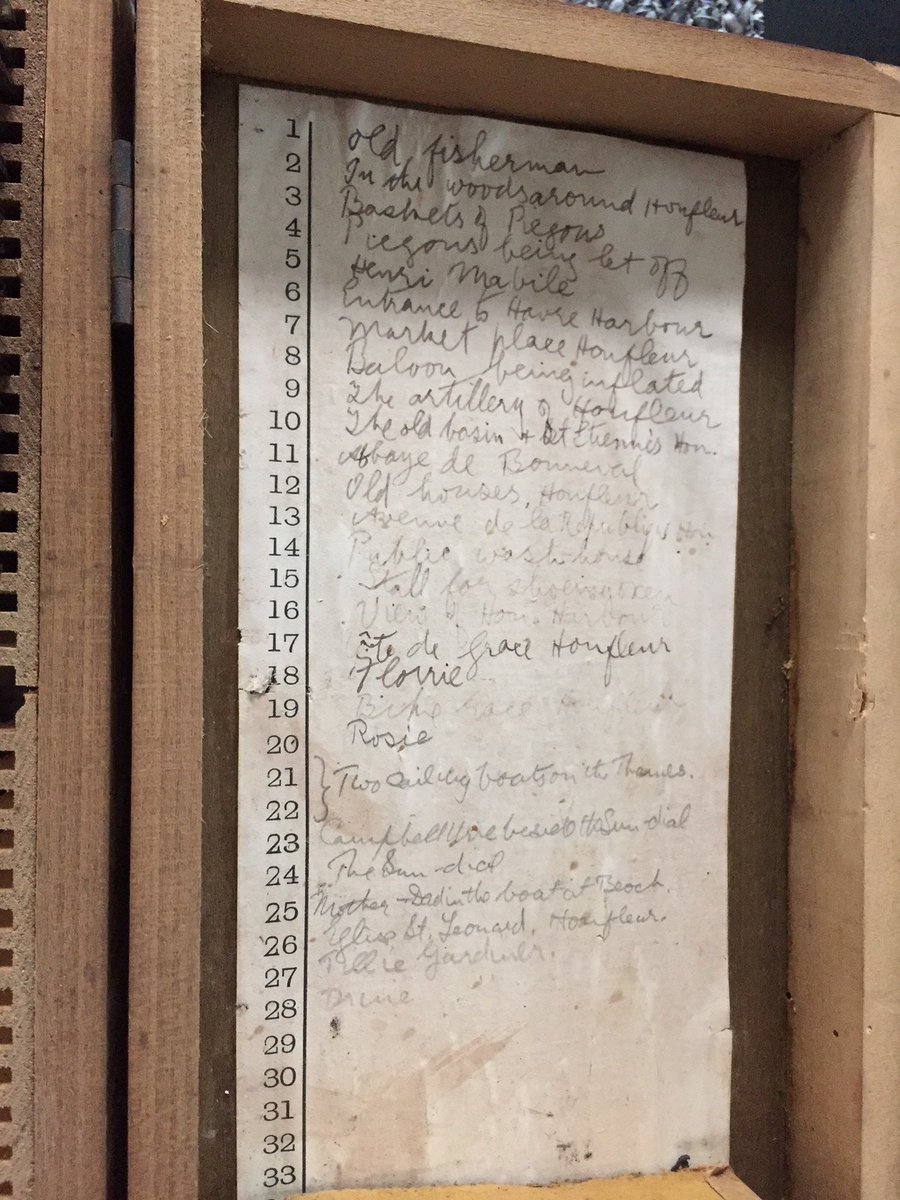 1 Old fisherman
2 In the woods around Honfleur
3 Baskets of Piegons
4 Piegons being let off
5 Henri Mabile
6 Entrance to Havre Harbour
7 Market place Honfleur
8 Baloon being inflated
9 The artillery of Honfleur
10 The old basin + St Etennis Hon.
11 Abbaye de Bonneval
12 Old houses, Honfleur
13 Avenue de la Hon
14 Public wash-house
15 Stall for shoeing oxen
16 View of Hon. Harbour
17 Côte de Grace Honfleur
18 Florrie
19 Bike race Honfleur
20 Rosie
21 } Two sailing boats on the Thames.
22
23 Campbell beside the Sun-dial
24 The Sun-dial
25 Mother + Dad in the boat at
26 St. Leonard, Honfleur.
27 Tillie Gardner.
28
29
30
31
32
33